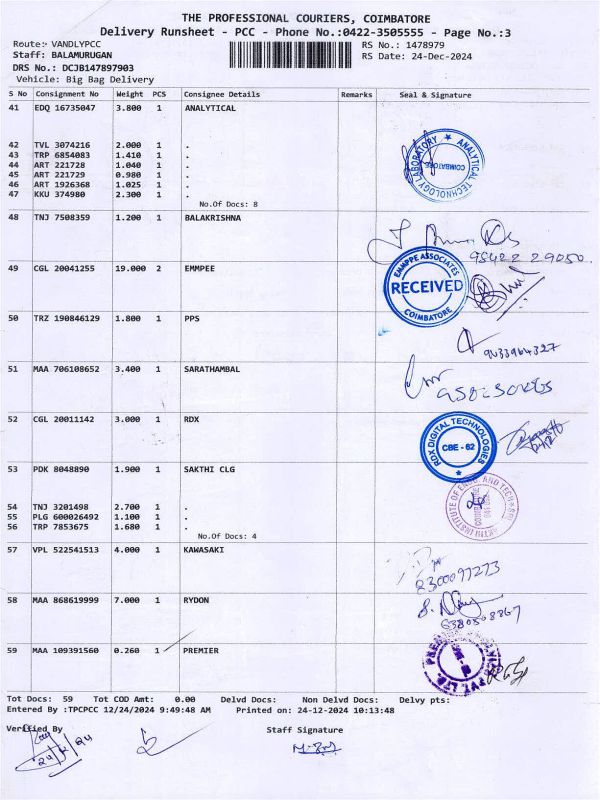 THE PROFESSIONAL COURIERS, COIMBATORE
Delivery Runsheet - PCC - Phone No.:0422-3505555 - Page No.:3
Route: VANDLYPCC RS No.: 1478979
Staff: BALAMURUGAN RS Date: 24-Dec-2024
DRS No.: DCJB147897903
Vehicle: Big Bag Delivery
S No Consignment No Weight PCS Consignee Details Remarks Seal & Signature
41 EDQ 16735047 3.800 1 ANALYTICAL
42 TVL 3074216 2.000 1 .
43 TRP 6854083 1.410 1 .
44 ART 221728 1.040 1 .
45 ART 221729 0.980 1 .
46 ART 1926368 1.025 1 .
47 KKU 374980 2.300 1 .
No.Of Docs: 8
ANALYTICAL TECHNOLOGY LABORATORY
COIMBATORE
48 TNJ 7508359 1.200 1 BALAKRISHNA
95422 29050.
49 CGL 20041255 19.000 2 EMMPEE
EMMPPE ASSOCIATES
RECEIVED
COIMBATORE
50 TRZ 190846129 1.800 1 PPS
9433964327
51 MAA 706108652 3.400 1 SARATHAMBAL
52 CGL 20011142 3.000 1 RDX
RDX DIGITAL TECHNOLOGIES
CBE - 62
53 PDK 8048890 1.900 1 SAKTHI CLG
54 TNJ 3201498 2.700 1 .
55 PLG 600026492 1.100 1 .
56 TRP 7853675 1.680 1 .
No.Of Docs: 4
INSTITUTE OF
57 VPL 522541513 4.000 1 KAWASAKI
2300097273
58 MAA 868619999 7.000 1 RYDON
59 MAA 109391560 0.260 1 PREMIER
Tot Docs: 59 Tot COD Amt: 0.00 Delvd Docs: Non Delvd Docs: Delvy pts:
Entered By :TPCPCC 12/24/2024 9:49:48 AM Printed on: 24-12-2024 10:13:48
Verified By Staff Signature
24/12/24